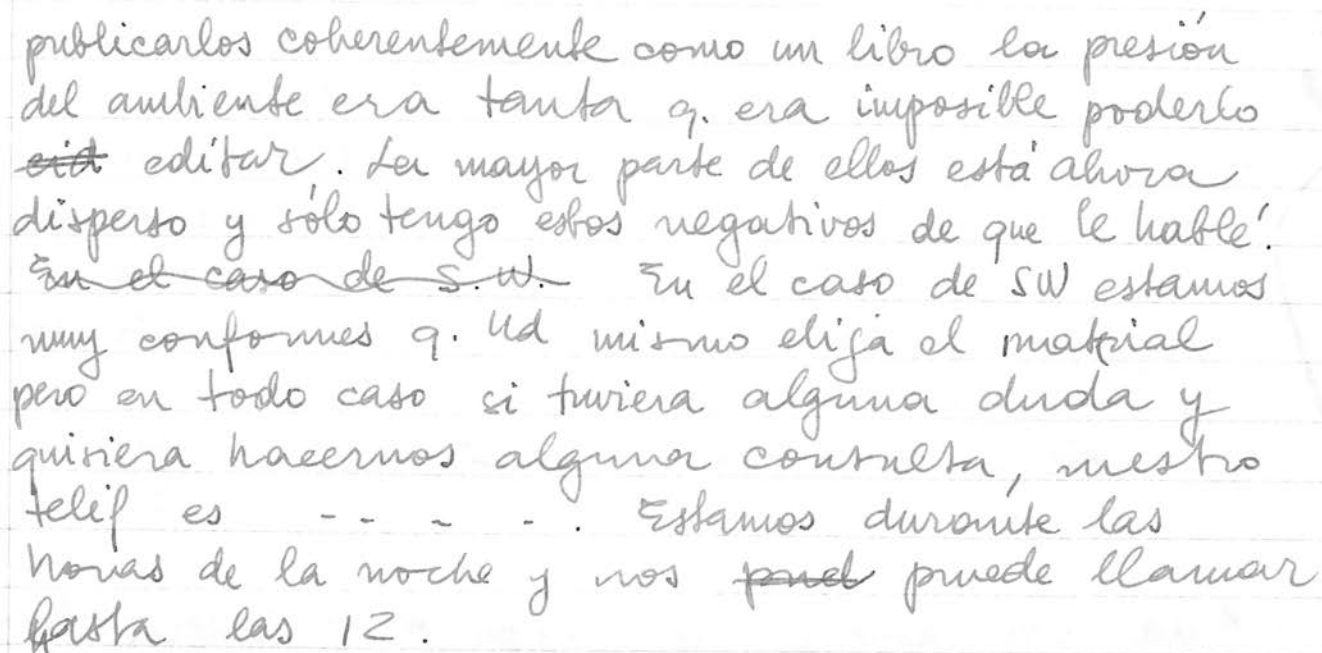 publicarlos coherentemente como un libro la presión
del ambiente era tanta q. era imposible poderlo
eid editar. La mayor parte de ellos está ahora
disperso y sólo tengo estos negativos de que le hablé.
En el caso de S.W. En el caso de SW estamos
muy conformes q. Ud mismo elija el material
pero en todo caso si tuviera alguna duda y
quisiera hacernos alguna consulta, nuestro
teléf es - - - - . Estamos durante las
horas de la noche y nos pued puede llamar
hasta las 12.